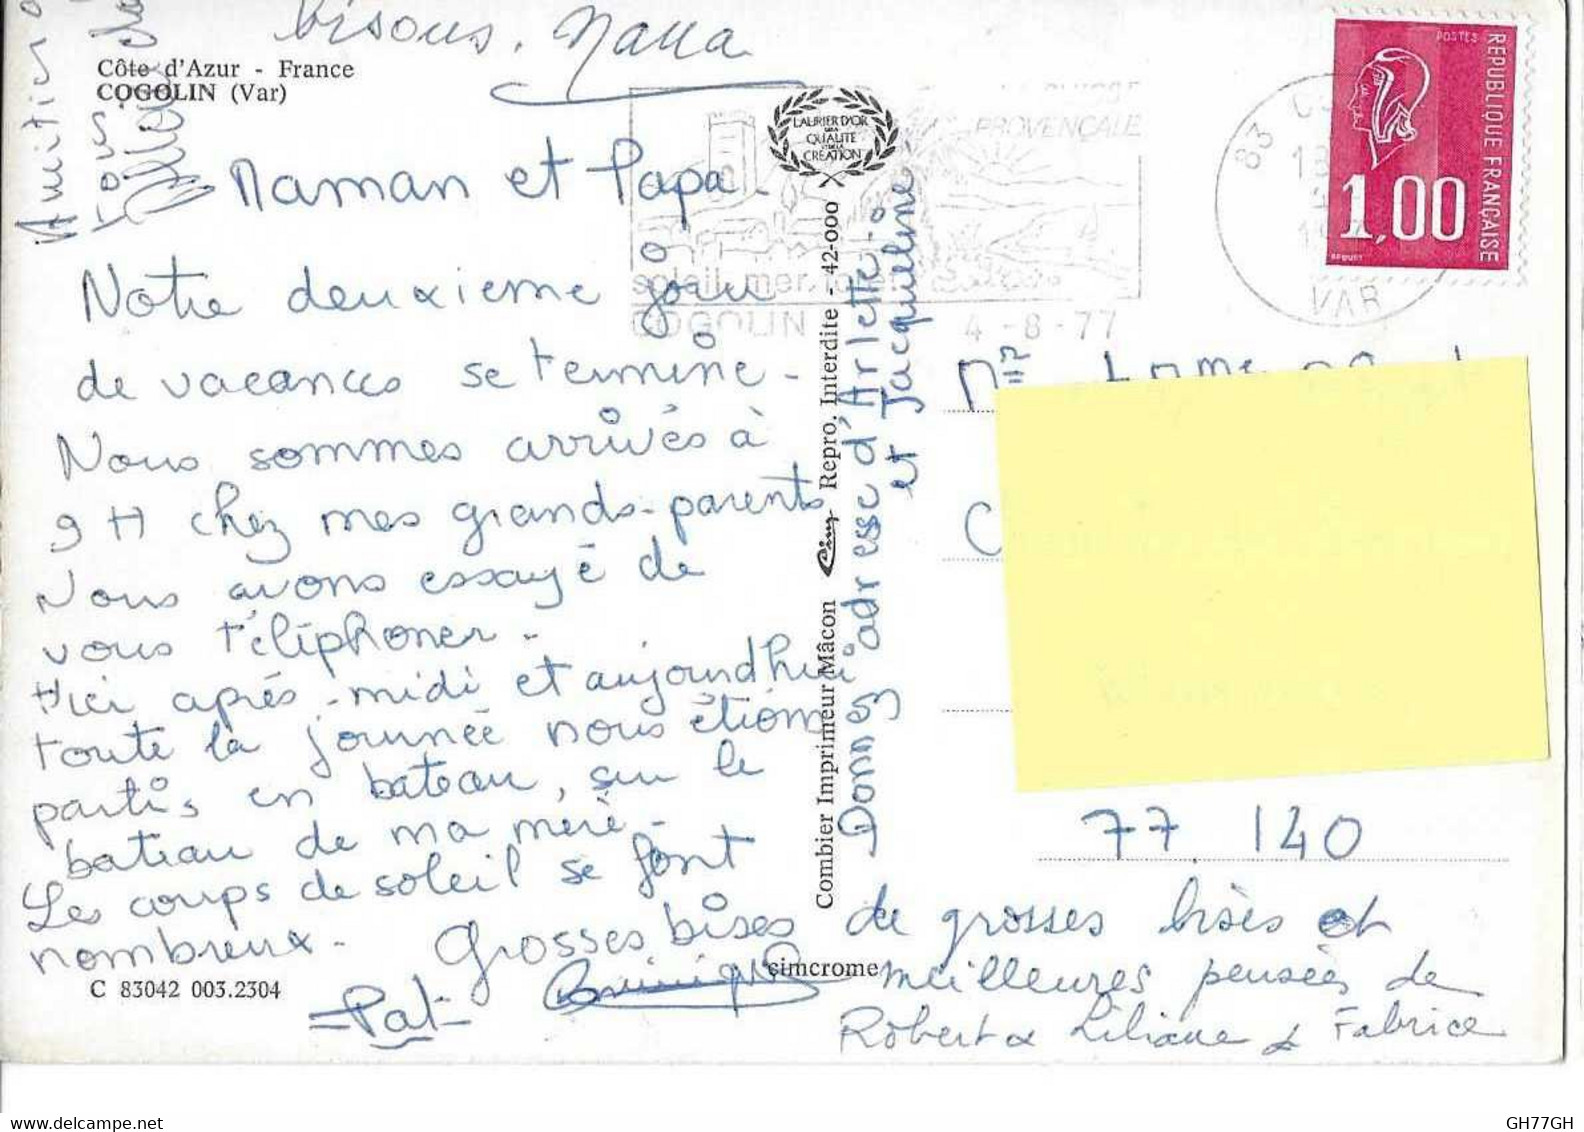 bisous. Nana
Amitiés à
tous.
Côte d'Azur - France
COGOLIN (Var)
Maman et Papa.
Notre deuxième jour
de vacances se termine -
Nous sommes arrivés à
9 H chez mes grands-parents
Nous avons essayé de
vous téléphoner -
Hier après-midi et aujourdhui
toute la journée nous étions
partis en bateau, sur le
bateau de ma mère -
Les coups de soleil se font
nombreux -
Grosses bises
Dominique
=Pat=
C 83042 003.2304
LAURIER D'OR
DE LA
QUALITE
ET DE LA
CREATION
Combier Imprimeur Mâcon Cim Repro. Interdite - 42-000
cimcrome
Donnes adresse d'Arlette
et Jacqueline
PROVENÇALE
soleil, mer,
COGOLIN
4 -8 -77
83
VAR
POSTES
REPUBLIQUE FRANÇAISE
1,00
77 140
de grosses bises et
meilleures pensées de
Robert & Liliane & Fabrice
GH77GH